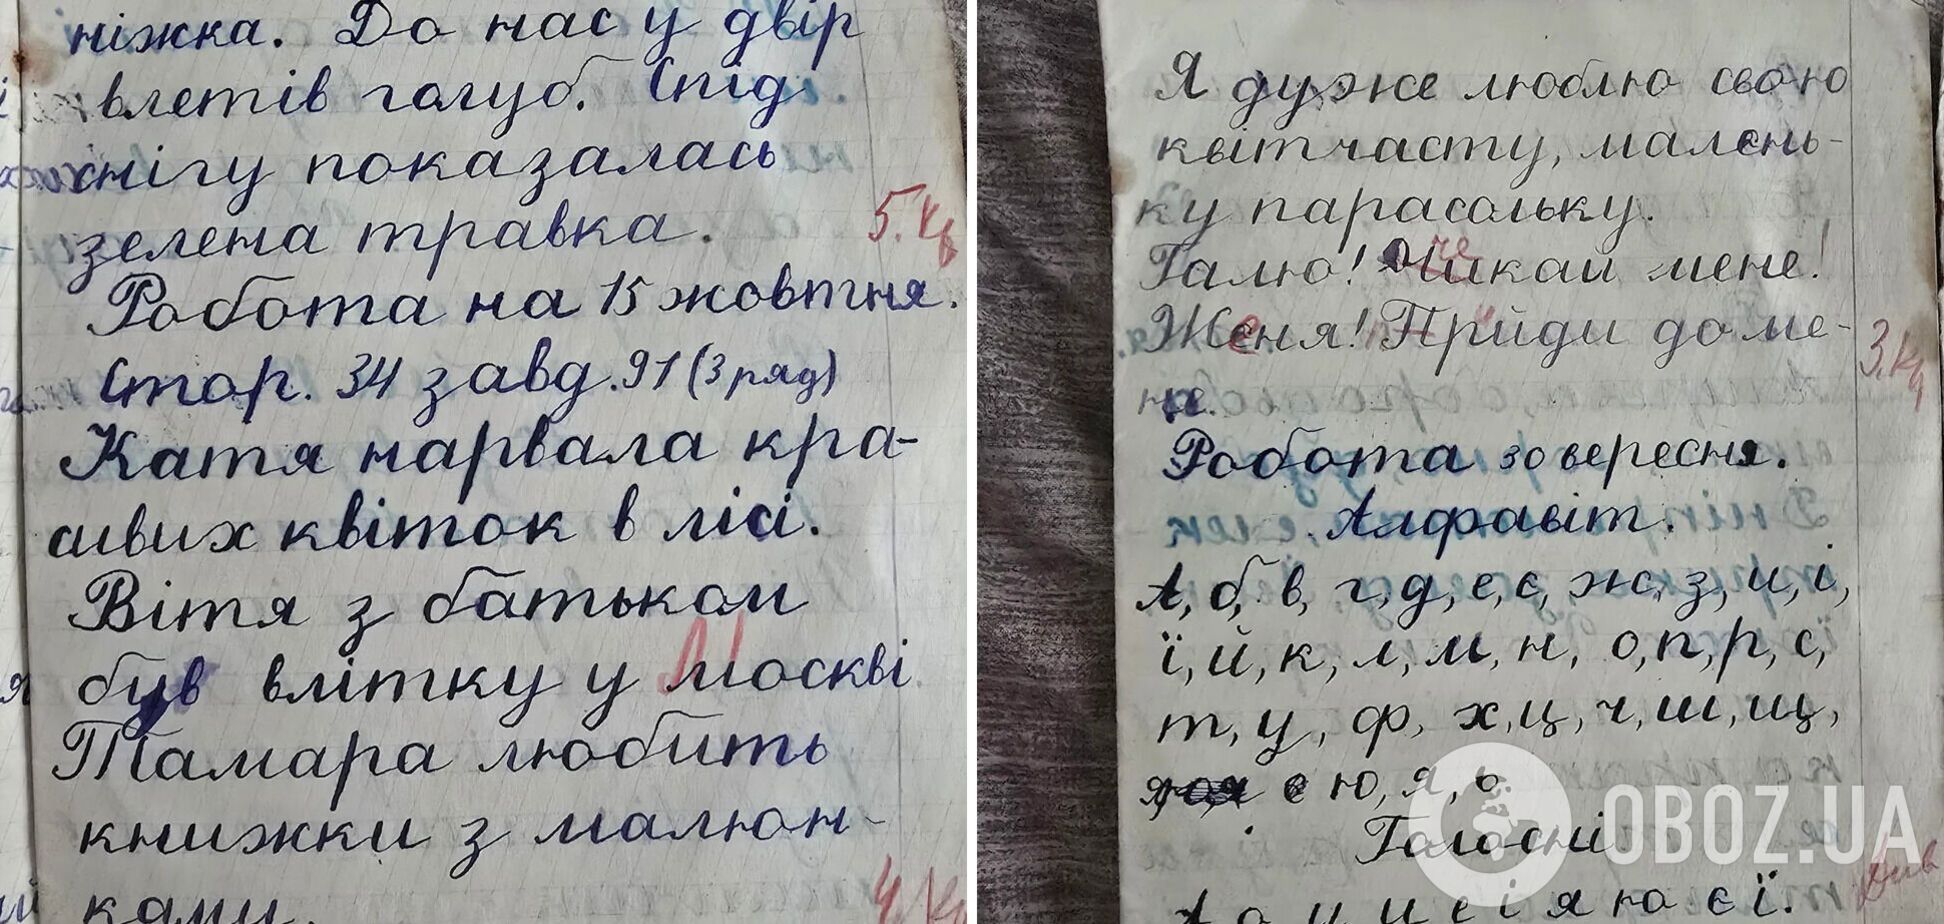 ніжка. До нас у двір
влетів голуб. Спід
снігу показалась
зелена травка.
5. Кв
Робота на 15 жовтня.
Стор. 34 завд. 91 (3 ряд)
Катя нарвала кра-
сивих квіток в лісі.
Вітя з батьком
був влітку у москві
Тамара любить
книжки з малюн-
ками.
4. Кв
Я дуже люблю свою
квітчасту, малень-
ку парасольку.
Галю! Чикай мене!
че
Женя! Прийди до ме-
не.
3. Кл
Робота 30 вересня.
Алфавіт.
А, б, в, г, д, е, є, ж, з, и, і,
ї, й, к, л, м, н, о, п, р, с,
т, у, ф, х, ц, ч, ш, щ,
ю, я, ь
Голосні
А о у и е і я ю є ї.
Див
OBOZ.UA